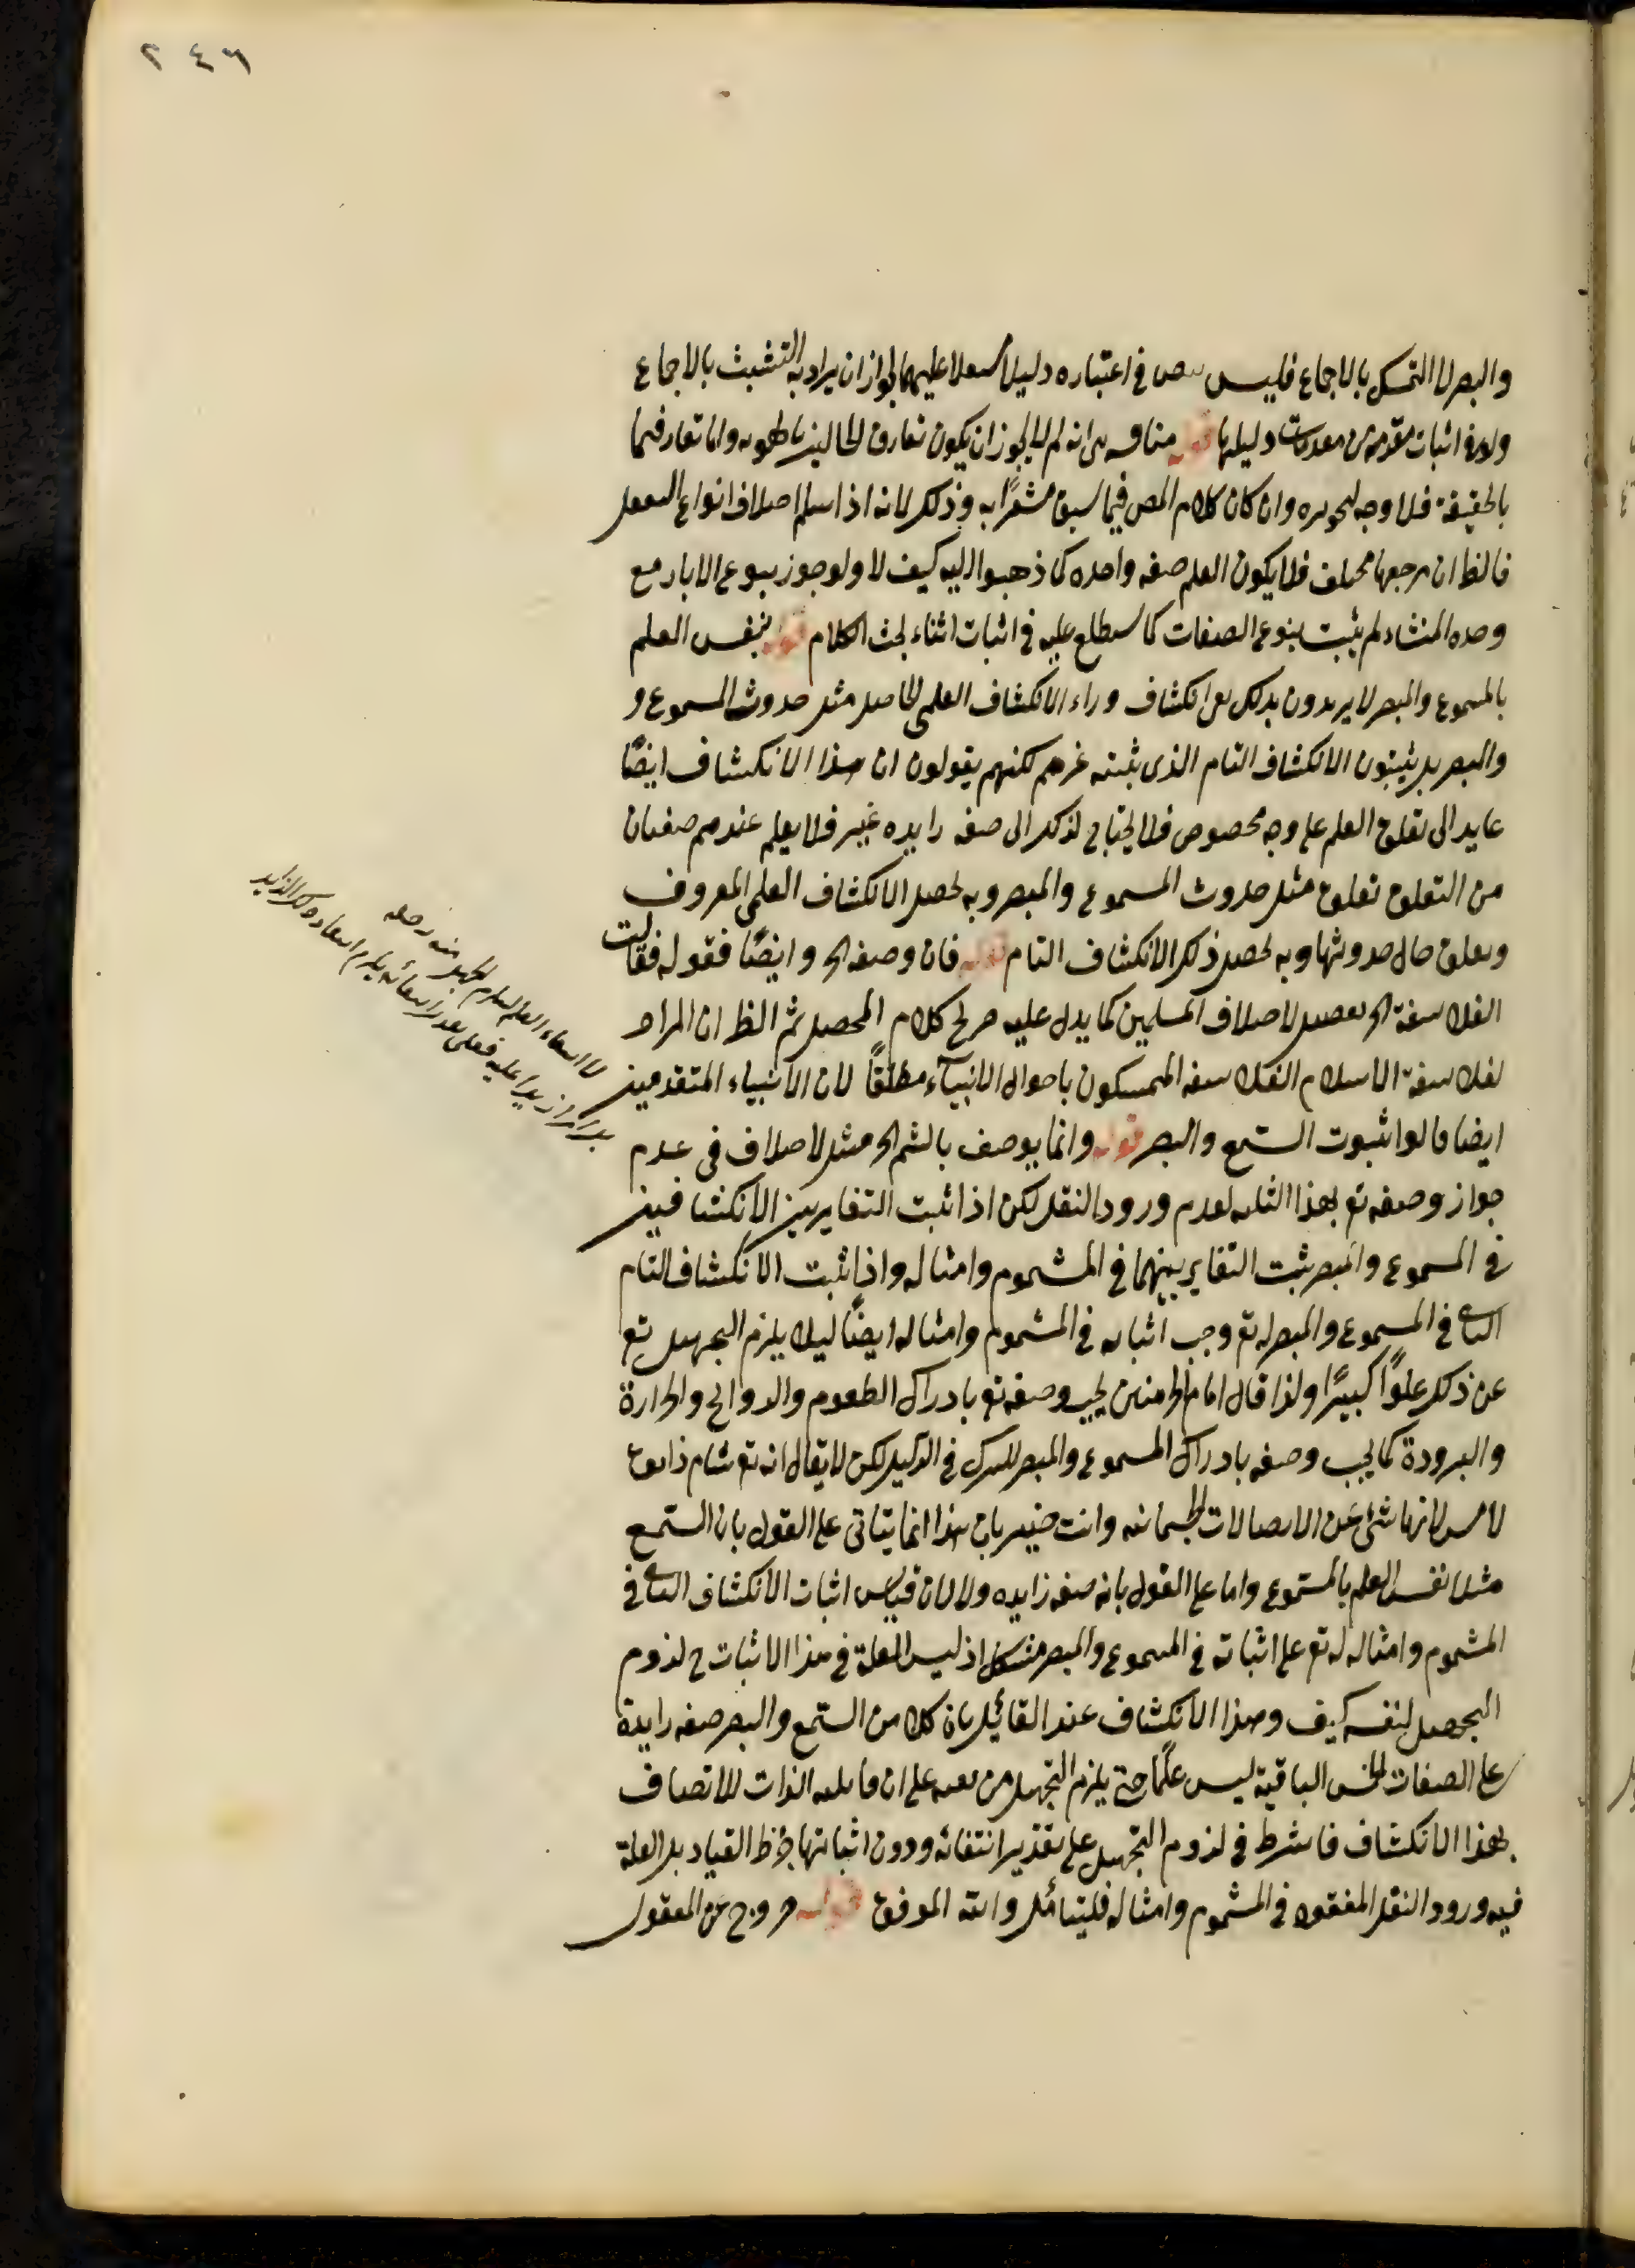 ٢٤٦
والبصر لا التمسك بالاجماع فليس في اعتباره دليلا عليهما لجواز ان يراد به التشبث بالاجماع
ولو في اثبات مقدمة من مقدمات دليلها قوله انه لم لا يجوز ان يكون تعارف وانما تعارفهما
بالحقيقة فلا وجه لتجويزه وان كان كلام المص فيما سبق مشعرًا به وذلك لانه اذا سلم اختلاف انواع التعقل
فالظ ان مرجعها مختلف فلا يكون العلم صفة واحدة كما ذهبوا اليه كيف لا ولو جوز ينبوع الابار مع
وحدة المنشاء لم يثبت ينبوع الصفات كما ستطلع عليه في اثبات اثناء بحث الكلام قوله بنفس العلم
بالمسموع والمبصر لا يريدون بذلك نفى انكشاف وراء الانكشاف العلمى الحاصل مثل حدوث المسموع و
والبصر بل يثبتون الانكشاف التام الذى يثبته غيرهم لكنهم يقولون ان هذا الانكشاف ايضًا
عايد الى تعلق العلم على وجه مخصوص فلا يحتاج لذلك الى صفة زايدة غير فلا يعلم عندهم صفتان
من التعلق تعلق مثل حدوث المسموع والمبصر وبه يحصل الانكشاف العلمى المعروف
وتعلق حال حدوثها وبه يحصل ذلك الانكشاف التام قوله فان وصفه الخ وايضًا فقوله فقالت
الفلاسفة الخ تفصيل لاختلاف المسلمين كما يدل عليه صريح كلام المحصل ثم الظ ان المراد
لفلاسفة الاسلام الفلاسفة المتمسكون باحوال الانبياء مطلقًا لان الانبياء المتقدمين
ايضا قالوا بثبوت السمع والبصر قوله وانما يوصف بالشم الخ مثل لاختلاف فى عدم
جواز وصفه تع بهذا الثلثه لعدم ورود النقل لكن اذا ثبت التغاير بين الانكشافين
في المسموع والمبصر ثبت التغاير بينهما في المشموم وامثاله واذا ثبت الانكشاف التام
الثانى في المسموع والمبصر له تع وجب اثباته في المشموم وامثاله ايضًا ليلا يلزم التجهيل تع
عن ذلك علوًا كبيرًا ولذا قال امام الحرمين يجب وصفه تع بادراك الطعوم والروايح والحرارة
والبرودة كما يجب وصفه بادراك المسموع والمبصر للشرك في الدليل لكن لا يقال انه تع شام ذايق
لامس لانها تنبئ عن الاتصالات الجسمانية وانت خبير بان هذا انما يتاتى على القول بان السمع
مثلا نفس العلم بالمسموع واما على القول بانه صفة زايدة ولا لان قياس اثبات الانكشاف الثانى في
المشموم وامثاله له تع على اثباته في المسموع والمبصر مشكل اذ ليس العلة في هذا الاثبات ح لزوم
التجهيل لنفسه كيف وهذا الانكشاف عند القائل بان كلا من السمع والبصر صفة زايدة
على الصفات الخمس الباقية ليس علمًا حتى يلزم التجهيل من نفيه على ان قابلية الذات للاتصاف
بهذا الانكشاف فاشرط في لزوم التجهيل على تقدير انتفائه ودون اثباتها خرط القتاد بل العلة
فيه ورود النقل المفقود في المشموم وامثاله فليتامل والله الموفق قوله خروج عن المعقول
لان انتفاء العلم المستلزم للجهل منه رحمه